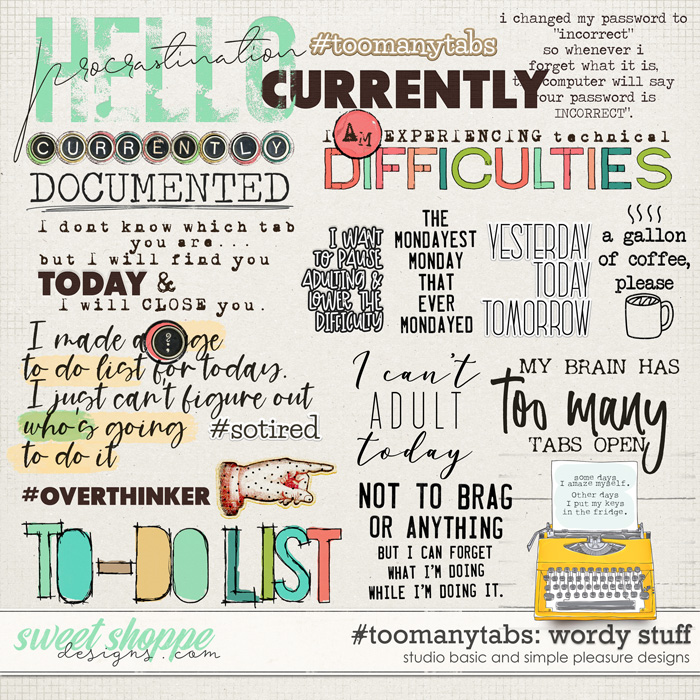 HELLO
procrastination
#toomanytabs
i changed my password to
"incorrect"
so whenever i
forget what it is,
computer will say
your password is
INCORRECT".
CURRENTLY
I AM EXPERIENCING technical
DIFFICULTIES
CURRENTLY
DOCUMENTED
I dont know which tab
you are...
but I will find you
TODAY &
I will CLOSE you.
I WANT
TO PAUSE
ADULTING &
LOWER THE
DIFFICULTY
THE
MONDAYEST
MONDAY
THAT
EVER
MONDAYED
YESTERDAY
TODAY
TOMORROW
a gallon
of coffee,
please
I made a
to do list for today.
I just can't figure out
who's going
to do it
#sotired
I can't
ADULT
today
MY BRAIN HAS
too many
TABS OPEN
#OVERTHINKER
TO-DO LIST
NOT TO BRAG
OR ANYTHING
BUT I CAN FORGET
WHAT I'M DOING
WHILE I'M DOING IT.
some days
I amaze myself.
Other days
I put my keys
in the fridge.
sweet shoppe
designs.com
#toomanytabs: wordy stuff
studio basic and simple pleasure designs